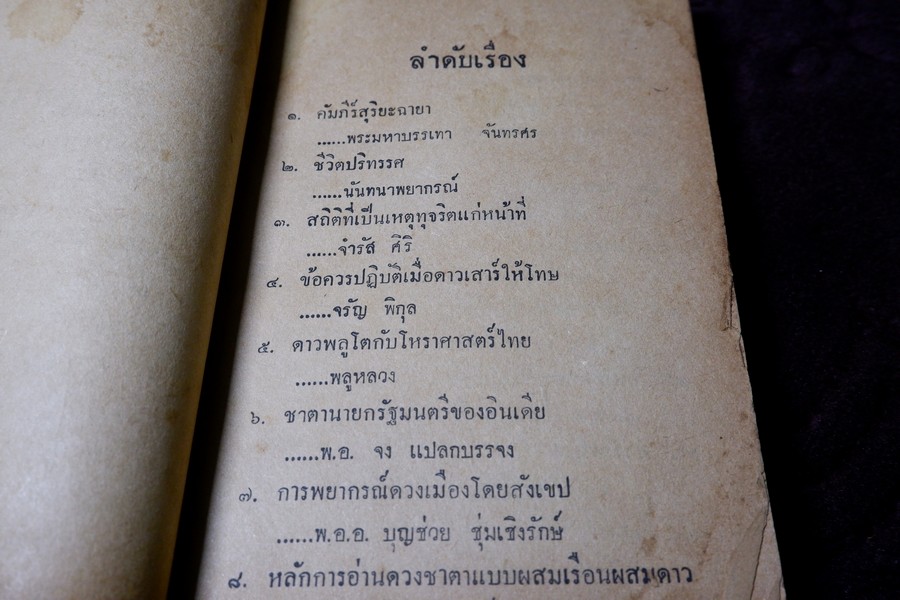 ลำดับเรื่อง
๑. คัมภีร์สุริยะฉายา
......พระมหาบรรเทา จันทรศร
๒. ชีวิตปริทรรศ
......นันทนาพยากรณ์
๓. สถิติที่เป็นเหตุทุจริตแก่หน้าที่
......จำรัส ศิริ
๔. ข้อควรปฏิบัติเมื่อดาวเสาร์ให้โทษ
......จรัญ พิกุล
๕. ดาวพลูโตกับโหราศาสตร์ไทย
......พลูหลวง
๖. ชาตานายกรัฐมนตรีของอินเดีย
......พ.อ. จง แปลกบรรจง
๗. การพยากรณ์ดวงเมืองโดยสังเขป
......พ.อ.อ. บุญช่วย ชุ่มเชิงรักษ์
๘. หลักการอ่านดวงชาตาแบบผสมเรือนผสมดาว